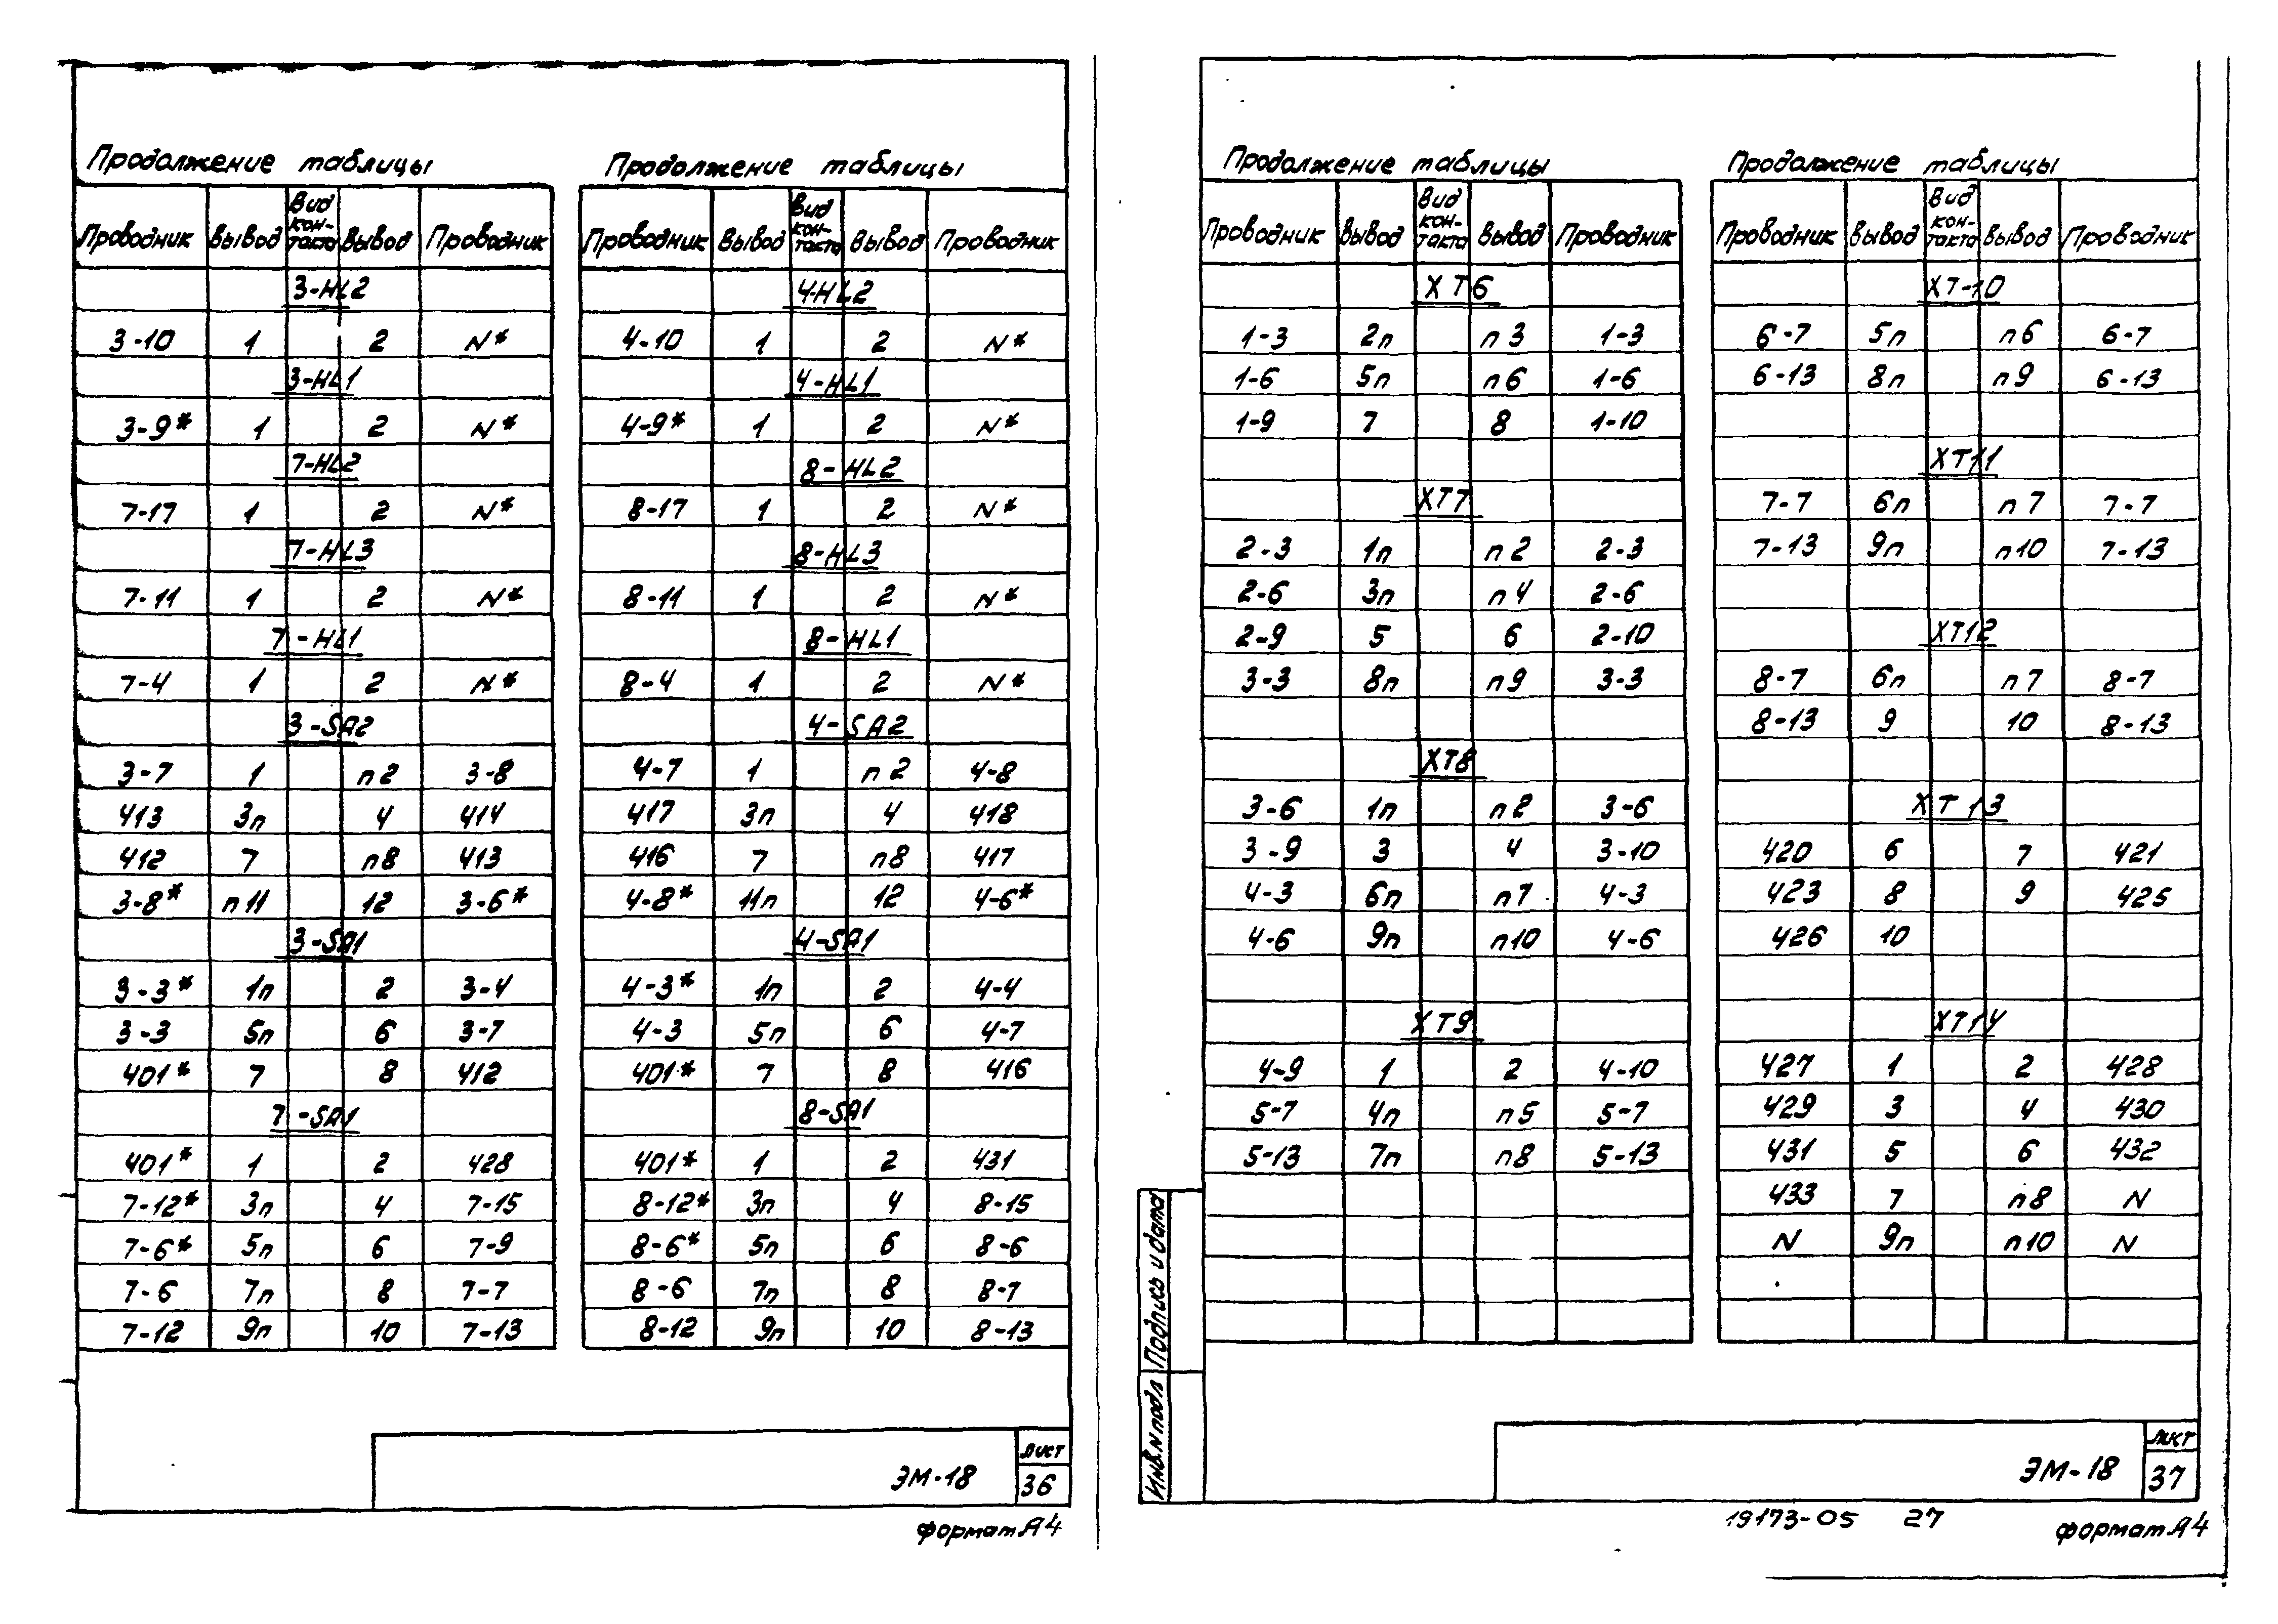 Продолжение таблицы
Проводник Вывод Вид кон-такта Вывод Проводник
3-HL2
3-10 1 2 N*
3-HL1
3-9* 1 2 N*
7-HL2
7-17 1 2 N*
7-HL3
7-11 1 2 N*
7-HL1
7-4 1 2 N*
3-SA2
3-7 1 п2 3-8
413 3п 4 414
412 7 п8 413
3-8* п11 12 3-6*
3-SA1
3-3* 1п 2 3-4
3-3 5п 6 3-7
401* 7 8 412
7-SA1
401* 1 2 428
7-12* 3п 4 7-15
7-6* 5п 6 7-9
7-6 7п 8 7-7
7-12 9п 10 7-13
Продолжение таблицы
Проводник Вывод Вид кон-такта Вывод Проводник
4-HL2
4-10 1 2 N*
4-HL1
4-9* 1 2 N*
8-HL2
8-17 1 2 N*
8-HL3
8-11 1 2 N*
8-HL1
8-4 1 2 N*
4-SA2
4-7 1 п2 4-8
417 3п 4 418
416 7 п8 417
4-8* 11п 12 4-6*
4-SA1
4-3* 1п 2 4-4
4-3 5п 6 4-7
401* 7 8 416
8-SA1
401* 1 2 431
8-12* 3п 4 8-15
8-6* 5п 6 8-6
8-6 7п 8 8-7
8-12 9п 10 8-13
ЭМ-18
Лист
36
формат А4
Продолжение таблицы
Проводник Вывод Вид кон-такта Вывод Проводник
XT6
1-3 2п п3 1-3
1-6 5п п6 1-6
1-9 7 8 1-10
XT7
2-3 1п п2 2-3
2-6 3п п4 2-6
2-9 5 6 2-10
3-3 8п п9 3-3
XT8
3-6 1п п2 3-6
3-9 3 4 3-10
4-3 6п п7 4-3
4-6 9п п10 4-6
XT9
4-9 1 2 4-10
5-7 4п п5 5-7
5-13 7п п8 5-13
Продолжение таблицы
Проводник Вывод Вид кон-такта Вывод Проводник
XT-10
6-7 5п п6 6-7
6-13 8п п9 6-13
XT11
7-7 6п п7 7-7
7-13 9п п10 7-13
XT12
8-7 6п п7 8-7
8-13 9 10 8-13
XT13
420 6 7 421
423 8 9 425
426 10
XT14
427 1 2 428
429 3 4 430
431 5 6 432
433 7 п8 N
N 9п п10 N
Инв.N подл Подпись и дата
ЭМ-18
Лист
37
19173-05 27
формат А4